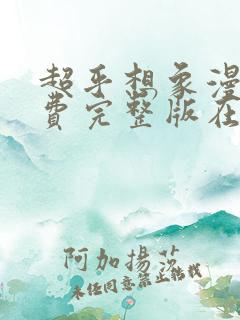 超乎想象漫
费完整版在
阿加揚莎
未经同意禁止转载